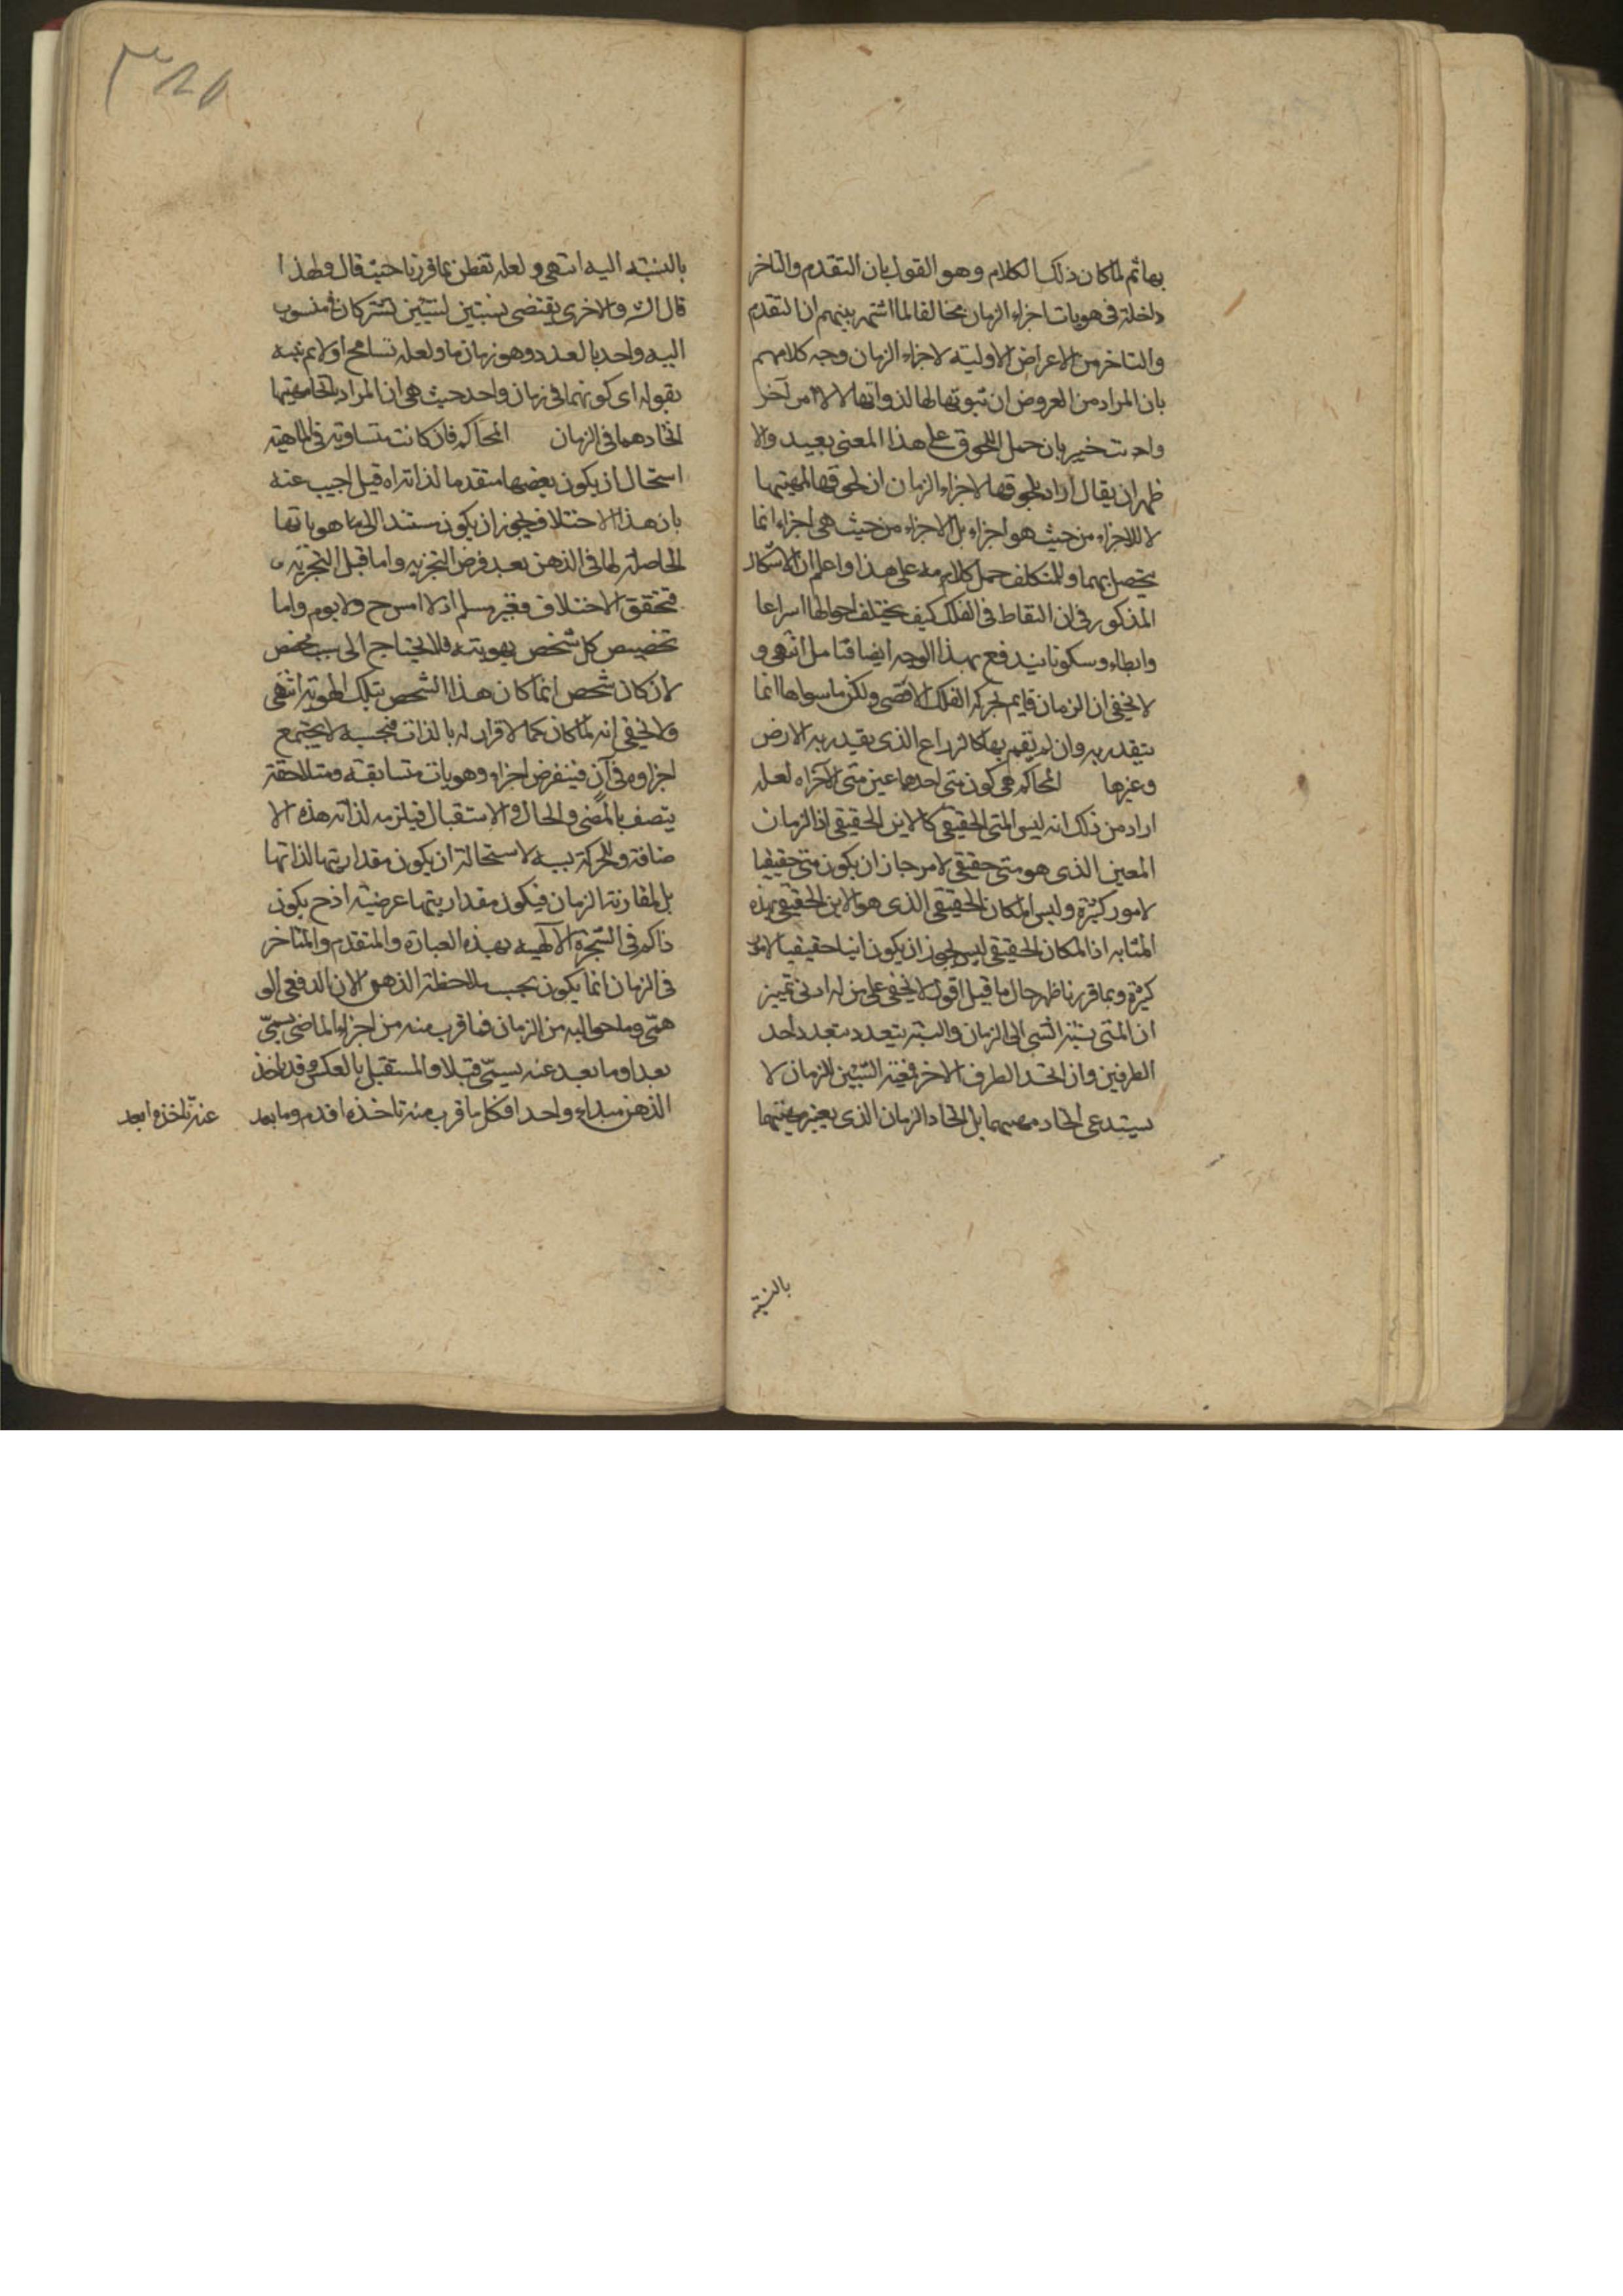 بها ثم لما كان ذلك الكلام وهو القول بان التقدم والتاخر
داخلة فى هويات اجزاء الزمان مخالفا لما اشتهر بينهم ان التقدم
والتاخر من الاعراض الاولية لاجزاء الزمان وجه كلامهم
بان المراد من العروض ان ثبوتها لها لذواتها لا لامر آخر
وانت خبير بان حمل اللحوق على هذا المعنى بعيد والا
ظهر ان يقال اراد بلحوقها لاجزاء الزمان ان لحوقها لمهيتها
لا للاجزاء من حيث هو اجزاء بل الاجزاء من حيث هى اجزاء انما
يتحصل بهما وللمتكلف حمل كلامه على هذا واعلم ان الاشكال
المذكور فى ان النقاط فى الفلك كيف يختلف احوالها اسراعا
وابطاء وسكونا يندفع بهذا الوجه ايضا فتامل انتهى و
لا يخفى ان الزمان قايم بحركة الفلك الاقصى ولكن ما سواها انما
يتقدر به وان لم يقم بها كالذراع الذى يقدر به الارض
وغيرها المحاكم هى كون متى احدهما عين متى الآخر اه لعله
اراد من ذلك انه ليس المتى الحقيقى كالاين الحقيقى اذ الزمان
المعين الذى هو متى حقيقى لامر جاز ان يكون متى حقيقيا
لامور كثيرة وليس المكان الحقيقى الذى هو الاين الحقيقى بهذه
المثابه اذ المكان الحقيقى ليس يجوز ان يكون اينا حقيقيا لامور
كثيرة وبما قررنا ظهر حال ما قيل اقول لا يخفى على من له ادنى تمييز
ان المتى نسبة الشى الى الزمان والنسبة يتعدد بتعدد احد
الطرفين وان اتحد الطرف الاخر فمعية الشيئين للزمان لا
يستدعى اتحاد بل اتحاد الزمان الذى يعتبر معيتهما
بالنسبة
بالنسبة اليه انتهى ولعله تفطن بما قررنا حيث قال ولهذا
قال الش والاخرى يقتضى نسبتين لشيئين تشتركان فى منسوب
اليه واحد بالعدد وهو زمان ما ولعله تسامح اولا ثم نبه
بقوله اى كونهما فى زمان واحد حيث هى ان المراد باتحاد معيتهما
اتحادهما فى الزمان المحاكم فان كانت متساوية فى الماهية
استحال ان يكون بعضها متقدما لذاته اه قيل اجيب عنه
بان هذا الاختلاف يجوز ان يكون مستندا الى هوياتها
الحاصلة لها فى الذهن بعد فرض التجزيه واما قبل التجزيه
فتحقق الاختلاف فغير مسلم اذ لا امس ح ولا يوم واما
تخصيص كل شخص بهويته فلا يحتاج الى سبب مخصص
لان كان شخص انما كان هذا الشخص بتلك الهوية انتهى
ولا يخفى انه لما كان كما لا قرار له بالذات فبحسبه لا يجتمع
اجزاوه فى آن فينفرض اجزاء وهويات متسابقة ومتلاحقة
يتصف بالمضى والحال والاستقبال فيلزمه لذاته هذه الا
ضافة وللحركة بسببه لاستحالة ان يكون مقداريتها لذاتها
بل لمقارنة الزمان فيكون مقداريتها عرضية اذ ح يكون
ذاكم فى الشجرة الآلهية بهذه العبارة والمتقدم والمتاخر
فى الزمان انما يكون بحسب ملاحظة الذهن الان الدفعى الو
همى وما حواليه من الزمان فما قرب منه من اجزاء الماضى يسمى
بعدا وما بعد عنه يسمى قبلا والمستقبل بالعكس وقد ياخذ
الذهن مبداء واحدا فكل ما قرب منه تاخذه اقدم وما بعد
عنه تاخذه ابعد